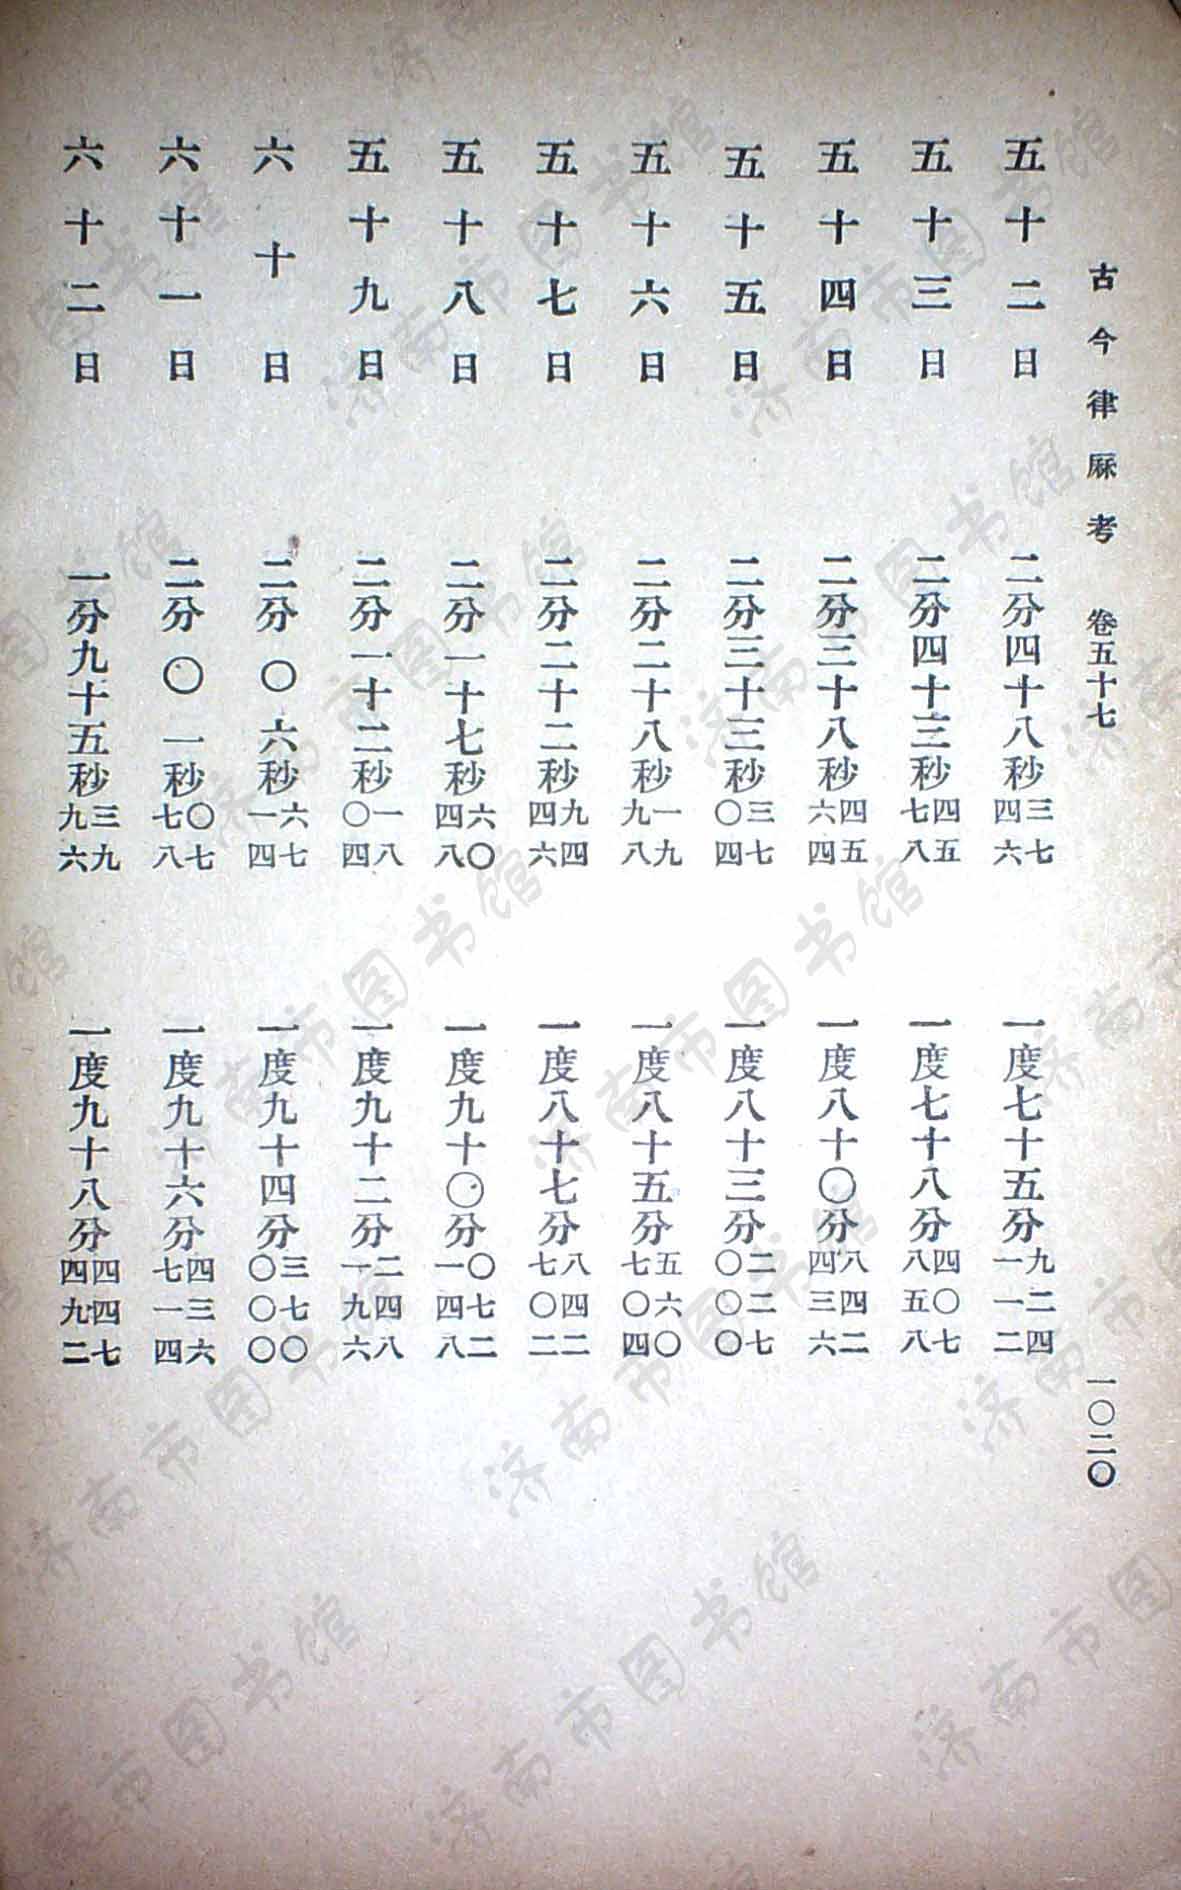 古今律厤考 卷五十七 一〇二〇
五十二日 二分四十八秒三七四六 一度七十五分九二四一一二
五十三日 二分四十三秒四五七八 一度七十八分四〇七八五八
五十四日 二分三十八秒四五六四 一度八十〇分八四二四三六
五十五日 二分三十三秒三七〇四 一度八十三分二二七〇〇〇
五十六日 二分二十八秒一九九八 一度八十五分五六〇七〇四
五十七日 二分二十二秒九四四六 一度八十七分八四二七〇二
五十八日 二分一十七秒六〇四八 一度九十〇分〇七二一四八
五十九日 二分一十二秒一八〇四 一度九十二分二四八一九六
六十日 二分〇六秒六七一四 一度九十四分三七〇〇〇〇
六十一日 二分〇一秒〇七七八 一度九十六分四三六七一四
六十二日 一分九十五秒三九九六 一度九十八分四四七四九二
济南市图书馆